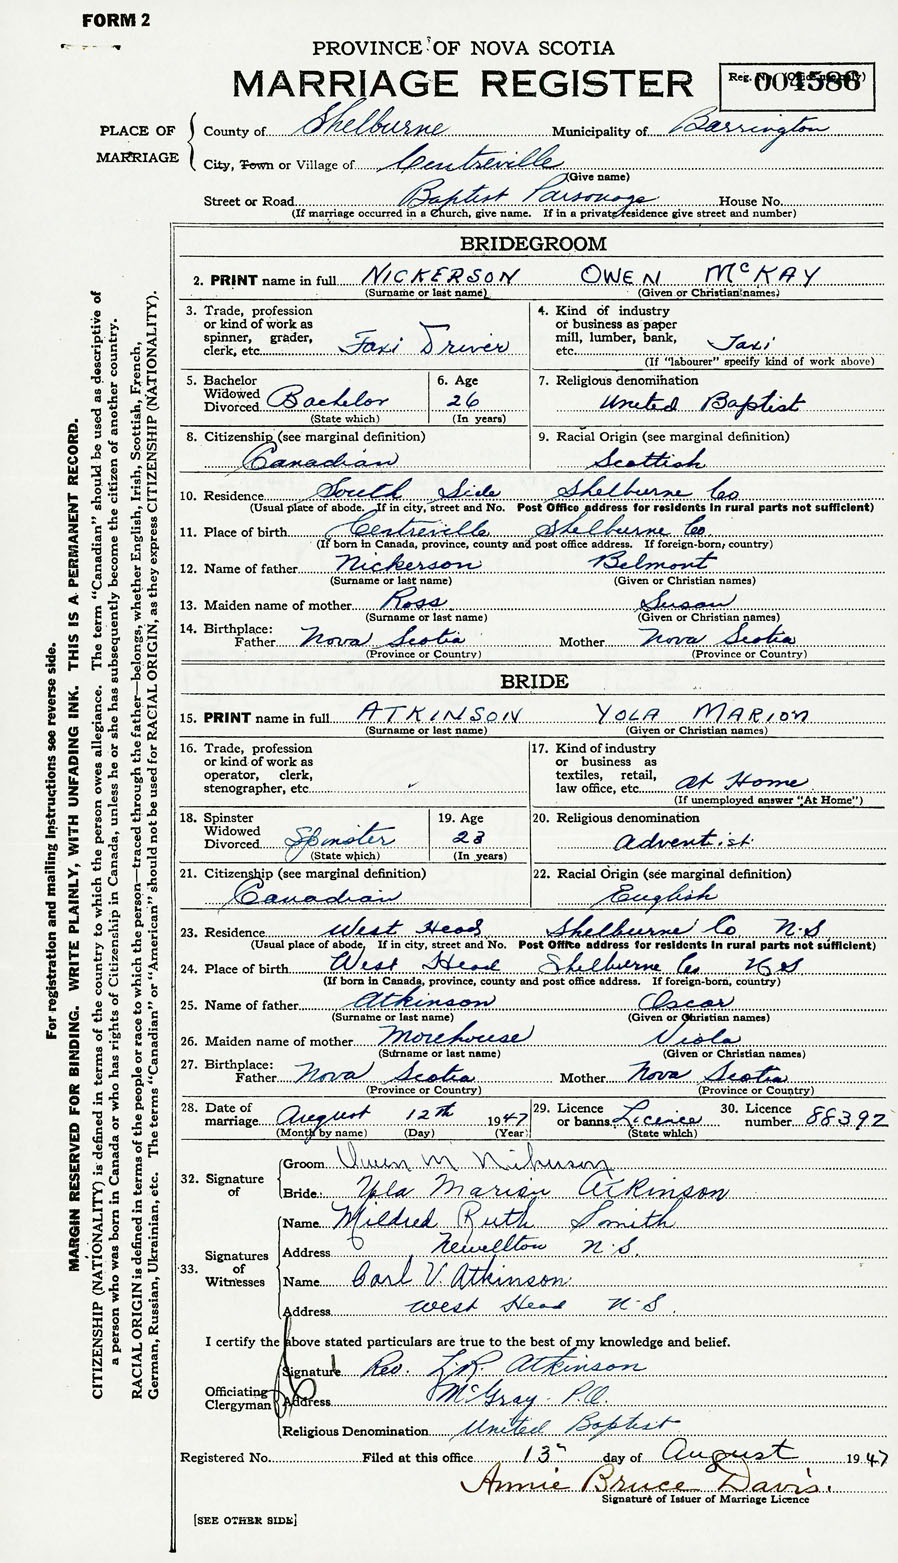 FORM 2
PROVINCE OF NOVA SCOTIA
MARRIAGE REGISTER
Reg. No. (Office use only)
004586
PLACE OF MARRIAGE
County of Shelburne Municipality of Barrington
City, Town or Village of Centreville
(Give name)
Street or Road Baptist Parsonage House No.
(If marriage occurred in a Church, give name. If in a private residence give street and number)
BRIDEGROOM
2. PRINT name in full NICKERSON OWEN McKAY
(Surname or last name) (Given or Christian names)
3. Trade, profession or kind of work as spinner, grader, clerk, etc. Taxi Driver
4. Kind of industry or business as paper mill, lumber, bank, etc. Taxi
(If "labourer" specify kind of work above)
5. Bachelor Widowed Divorced Bachelor
(State which)
6. Age 26
(In years)
7. Religious denomination
United Baptist
8. Citizenship (see marginal definition)
Canadian
9. Racial Origin (see marginal definition)
Scottish
10. Residence South Side Shelburne Co
(Usual place of abode. If in city, street and No. Post Office address for residents in rural parts not sufficient)
11. Place of birth Centreville Shelburne Co.
(If born in Canada, province, county and post office address. If foreign-born, country)
12. Name of father Nickerson Belmont
(Surname or last name) (Given or Christian names)
13. Maiden name of mother Ross Susan
(Surname or last name) (Given or Christian names)
14. Birthplace: Father Nova Scotia Mother Nova Scotia
(Province or Country) (Province or Country)
BRIDE
15. PRINT name in full ATKINSON YOLA MARION
(Surname or last name) (Given or Christian names)
16. Trade, profession or kind of work as operator, clerk, stenographer, etc
17. Kind of industry or business as textiles, retail, law office, etc. At Home
(If unemployed answer "At Home")
18. Spinster Widowed Divorced Spinster
(State which)
19. Age 23
(In years)
20. Religious denomination
Adventist
21. Citizenship (see marginal definition)
Canadian
22. Racial Origin (see marginal definition)
English
23. Residence West Head Shelburne Co N.S
(Usual place of abode, If in city, street and No. Post Office address for residents in rural parts not sufficient)
24. Place of birth West Head Shelburne Co N S
(If born in Canada, province, county and post office address. If foreign-born, country)
25. Name of father Atkinson Oscar
(Surname or last name) (Given or Christian names)
26. Maiden name of mother Morehouse Viola
(Surname or last name) (Given or Christian names)
27. Birthplace: Father Nova Scotia Mother Nova Scotia
(Province or Country) (Province or Country)
28. Date of marriage August 12th 1947
(Month by name) (Day) (Year)
29. Licence or banns Licence
(State which)
30. Licence number 88392
32. Signature of
Groom Owen M Nickerson
Bride: Yola Marion Atkinson
33. Signatures of Witnesses
Name Mildred Ruth Smith
Address Newellton N.S.
Name Carl V. Atkinson
Address West Head N.S.
I certify the above stated particulars are true to the best of my knowledge and belief.
Officiating Clergyman
Signature Rev. L.R. Atkinson
Address McGray P.O.
Religious Denomination United Baptist
Registered No. Filed at this office 13" day of August 1947
Annie Bruce Davis.
Signature of Issuer of Marriage Licence
[SEE OTHER SIDE]
For registration and mailing instructions see reverse side.
MARGIN RESERVED FOR BINDING. WRITE PLAINLY, WITH UNFADING INK. THIS IS A PERMANENT RECORD.
CITIZENSHIP (NATIONALITY) is defined in terms of the country to which the person owes allegiance. The term "Canadian" should be used as descriptive of
a person who was born in Canada or who has rights of Citizenship in Canada, unless he or she has subsequently become the citizen of another country.
RACIAL ORIGIN is defined in terms of the people or race to which the person—traced through the father—belongs, whether English, Irish, Scottish, French,
German, Russian, Ukrainian, etc. The terms "Canadian" or "American" should not be used for RACIAL ORIGIN, as they express CITIZENSHIP (NATIONALITY).